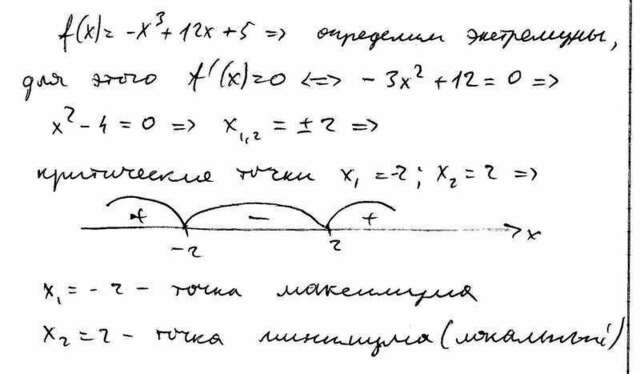 f(x)= -x³ + 12x + 5 => определим экстремумы,
для этого f'(x)=0 <=> - 3x² + 12 = 0 =>
x² - 4 = 0 => x₁,₂ = ± 2 =>
критические точки x₁ = -2 ; x₂ = 2 =>
+ - +
-2 2 x
x₁ = - 2 - точка максимума
x₂ = 2 - точка минимума (локальный)